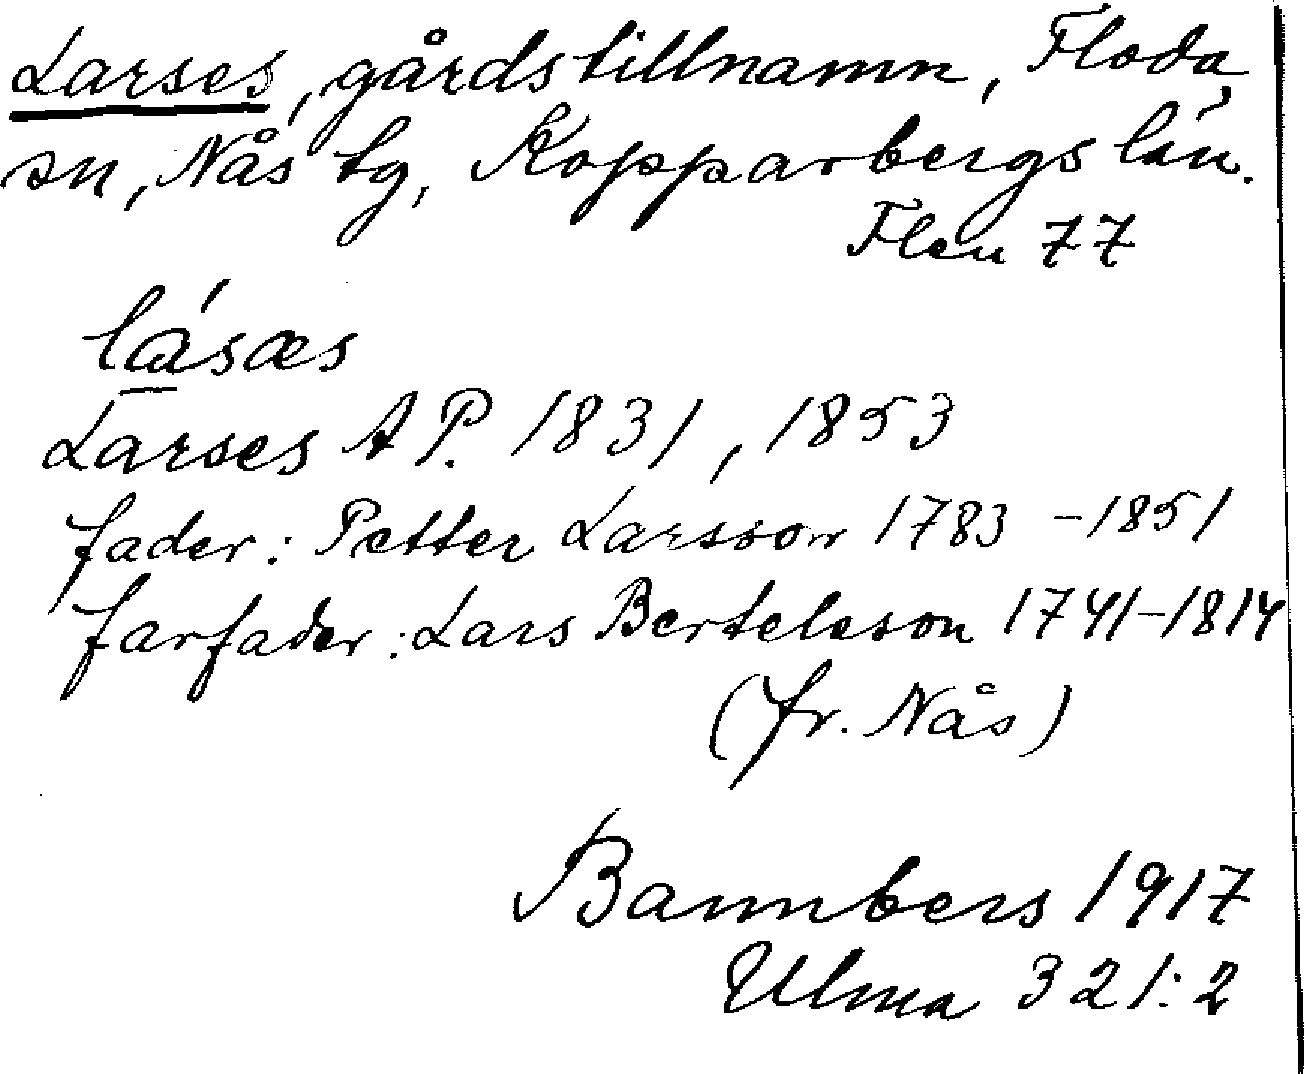 Larses, gårdstillnamn, Floda
sn, Nås tg, Kopparbergs län.
Flen 77
lásæs
Larses A P. 1831, 1853
fader: Petter Larsson 1783-1851
farfader: Lars Bertelsson 1741-1814
(fr. Nås)
Bannbers 1917
Ulma 321:2